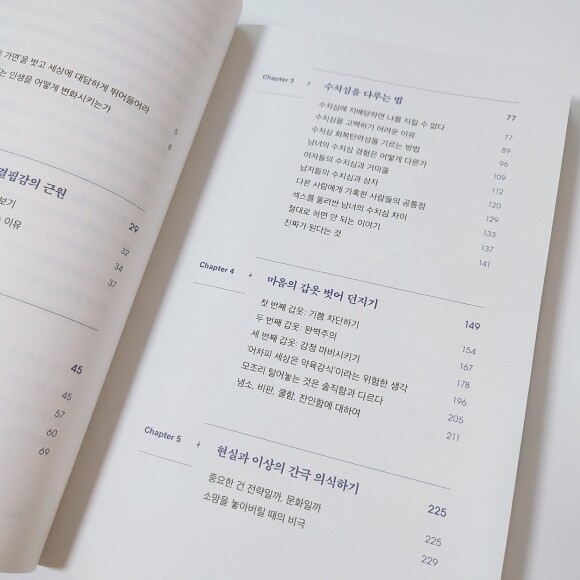 가면'을 벗고 세상에 대담하게 뛰어들어라 5
는 인생을 어떻게 변화시키는가 8
결핍감의 근원 29
보기 32
는 이유 34
37
45
45
57
60
69
Chapter 3 + 수치심을 다루는 법 77
수치심에 지배당하면 나를 지킬 수 없다 77
수치심을 고백하기 어려운 이유 89
수치심 회복탄력성을 기르는 방법 96
남녀의 수치심 경험은 어떻게 다른가 109
여자들의 수치심과 거미줄 112
남자들의 수치심과 상자 120
다른 사람에게 가혹한 사람들의 공통점 129
섹스를 둘러싼 남녀의 수치심 차이 133
절대로 하면 안 되는 이야기 137
진짜가 된다는 것 141
Chapter 4 + 마음의 갑옷 벗어 던지기 149
첫 번째 갑옷: 기쁨 차단하기 154
두 번째 갑옷: 완벽주의 167
세 번째 갑옷: 감정 마비시키기 178
'어차피 세상은 약육강식'이라는 위험한 생각 196
모조리 털어놓는 것은 솔직함과 다르다 205
냉소, 비판, 쿨함, 잔인함에 대하여 211
Chapter 5 + 현실과 이상의 간극 의식하기 225
중요한 건 전략일까, 문화일까 225
소망을 놓아버릴 때의 비극 229